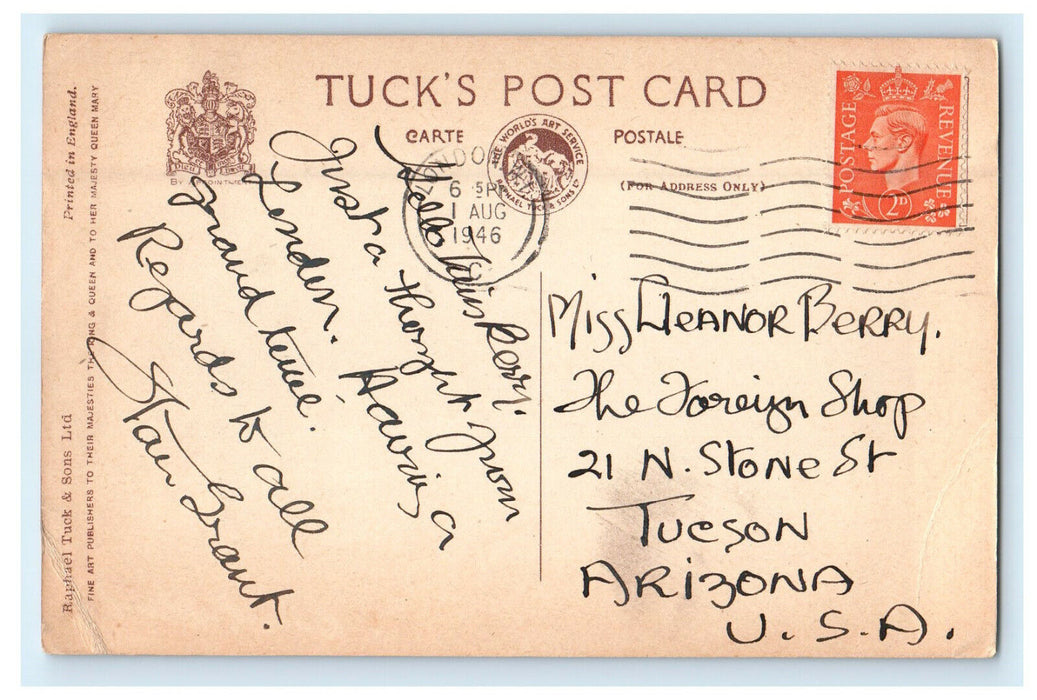 TUCK'S POST CARD
CARTE POSTALE
(FOR ADDRESS ONLY)
BY APPOINTMENT
THE WORLD'S ART SERVICE
RAPHAEL TUCK & SONS LTD
LONDON
6 15PM
1 AUG
1946
POSTAGE REVENUE
2D
Hello Miss Berry.
Just a thought from
London. Having a
grand time.
Regards to all
Stan Grant.
Miss Eleanor Berry.
The Foreign Shop
21 N. Stone St
Tucson
Arizona
U.S.A.
Raphael Tuck & Sons Ltd Printed in England.
FINE ART PUBLISHERS TO THEIR MAJESTIES THE KING & QUEEN AND TO HER MAJESTY QUEEN MARY